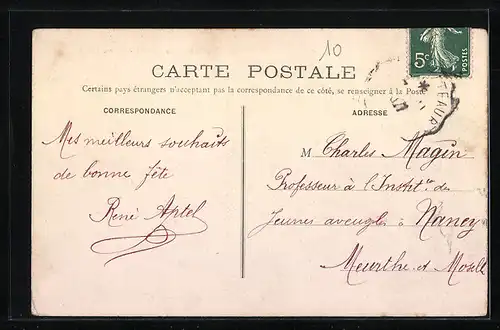 10
5c
POSTES
CARTE POSTALE
Certains pays étrangers n'acceptant pas la correspondance de ce côté, se renseigner à la Poste
CORRESPONDANCE
Mes meilleurs souhaits
de bonne fête
René Aptel
ADRESSE
M Charles Magin
Professeur à l'Instit.te de
Jeunes aveugles à Nancy
Meurthe et Moselle